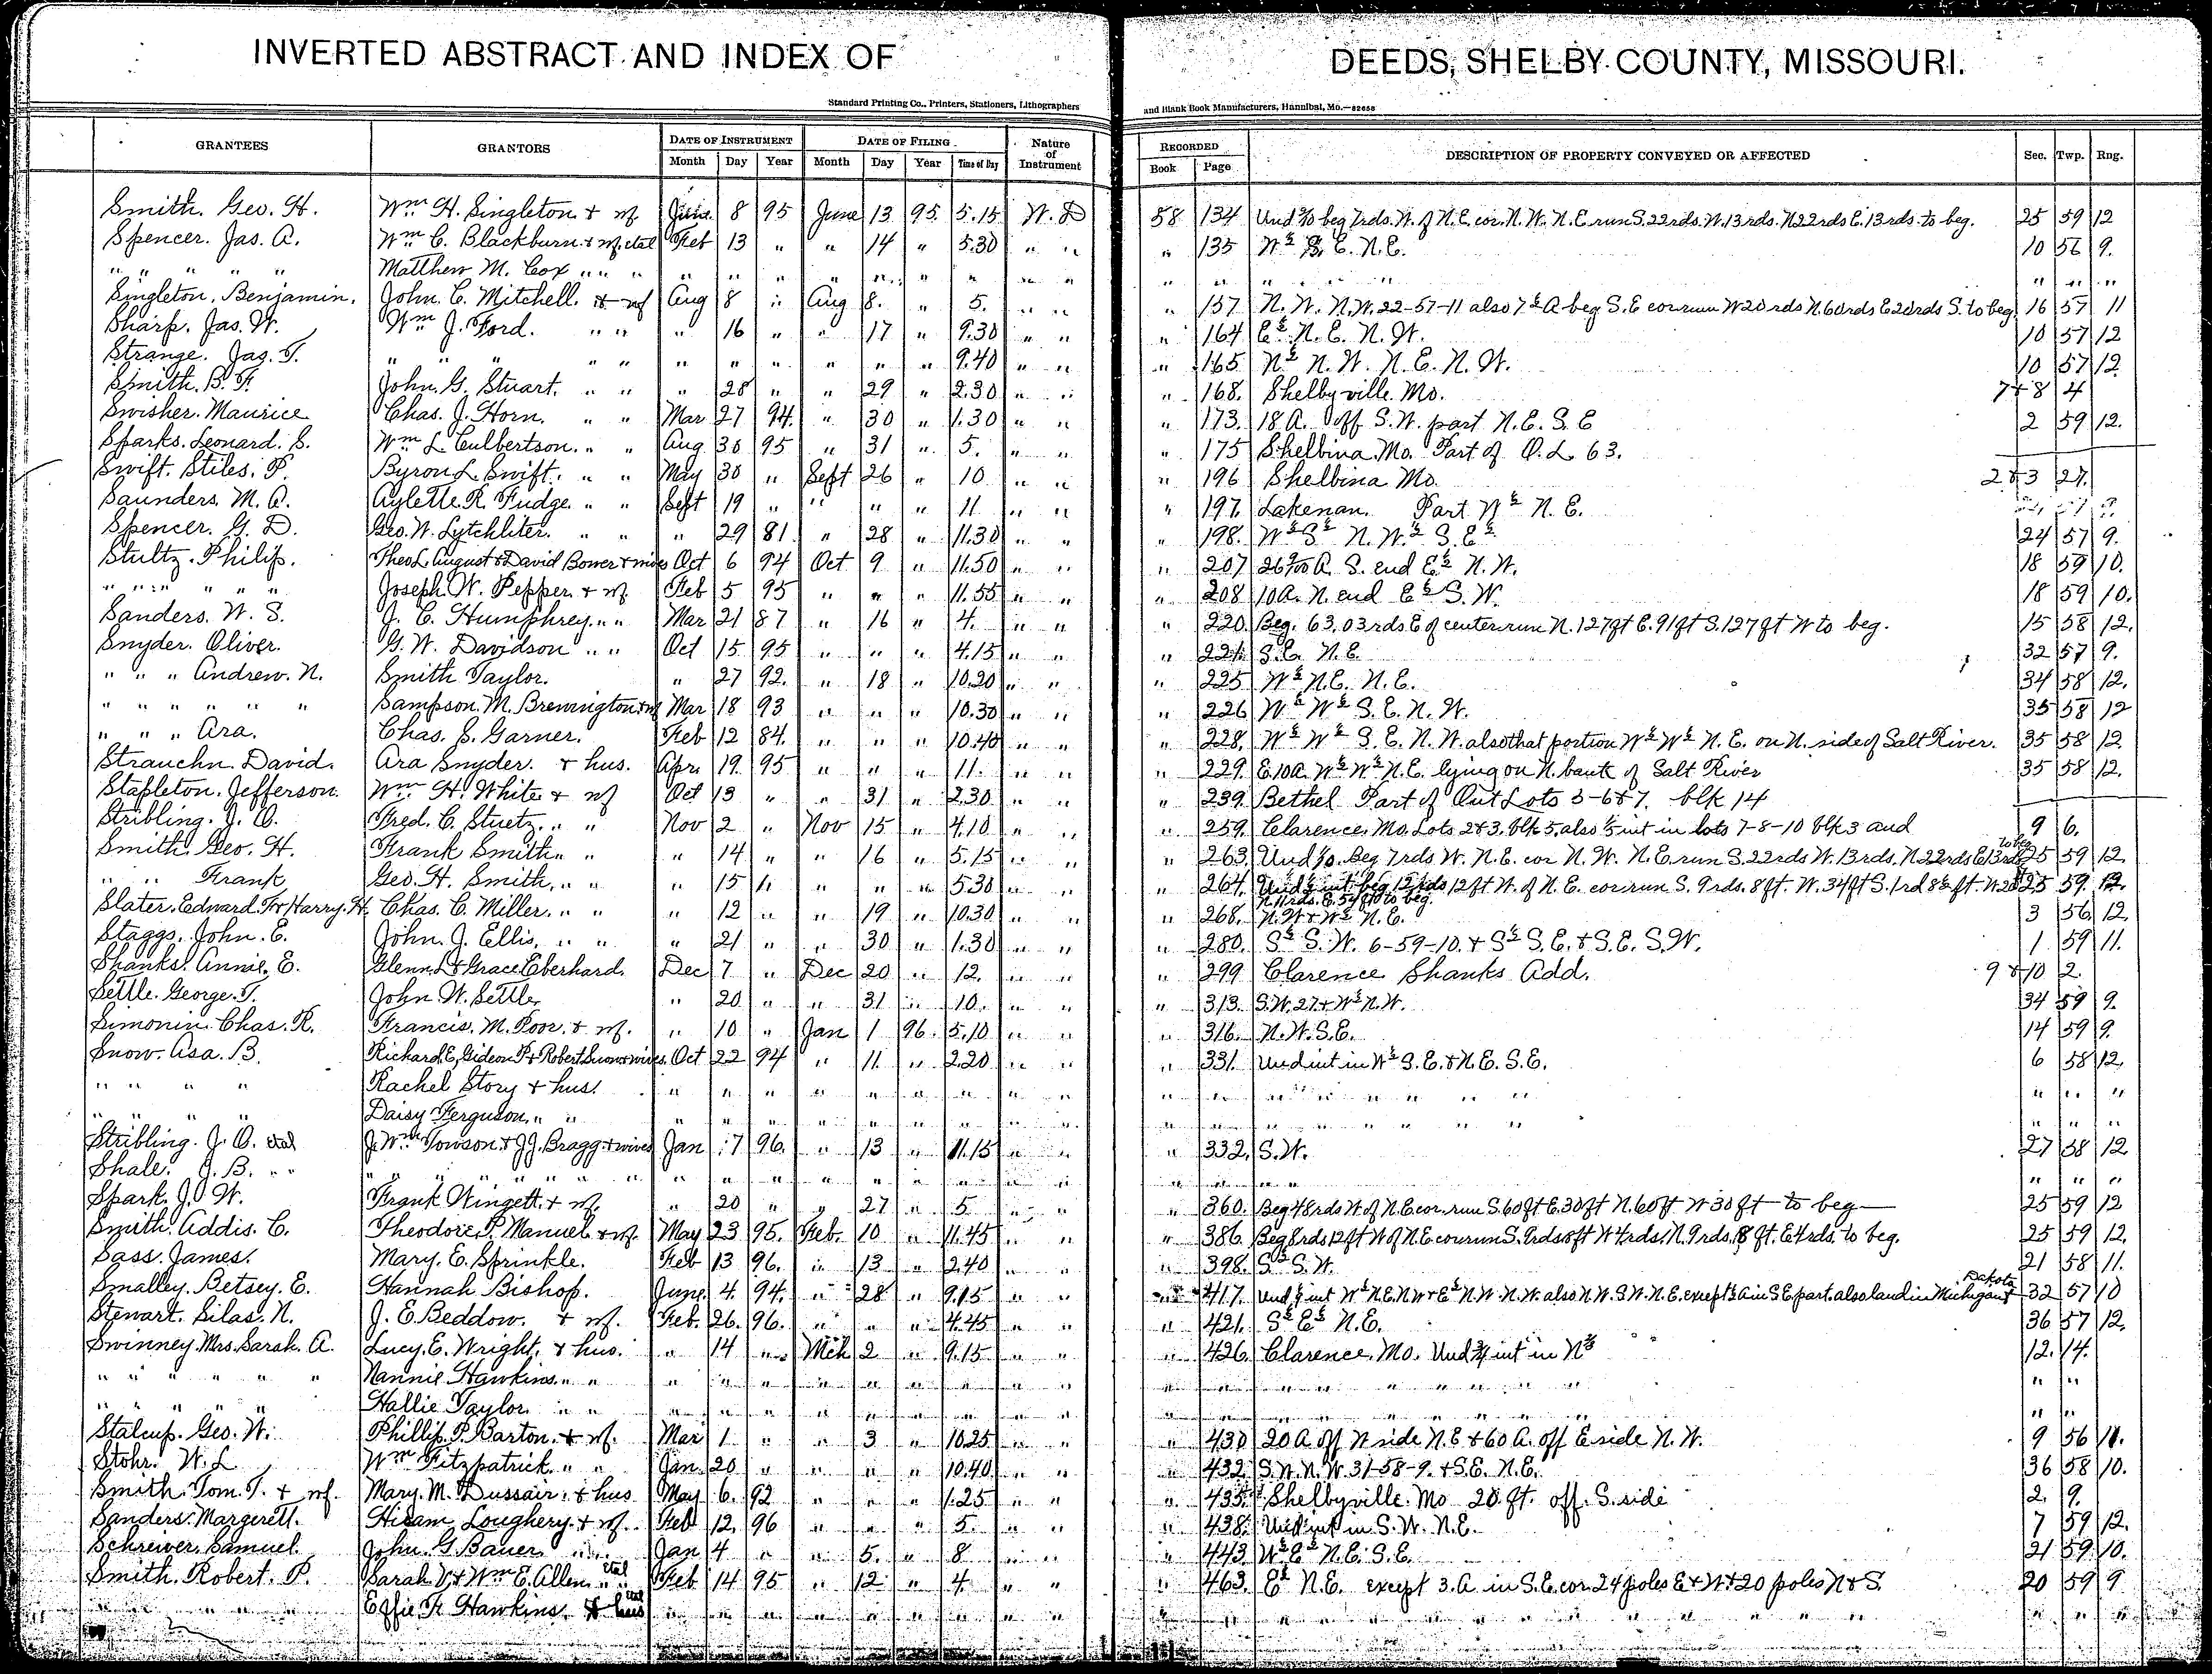 INVERTED ABSTRACT AND INDEX OF DEEDS, SHELBY COUNTY, MISSOURI.
Standard Printing Co., Printers, Stationers, Lithographers and Blank Book Manufacturers, Hannibal, Mo.—82658
GRANTEES GRANTORS DATE OF INSTRUMENT DATE OF FILING Nature of Instrument RECORDED DESCRIPTION OF PROPERTY CONVEYED OR AFFECTED Sec. Twp. Rng.
Month Day Year Month Day Year Time of Day Book Page
Smith. Geo. H. Wm H. Singleton & wf June 8 95 June 13 95 5.15 W. D 58 134 beg 7rds. W. of N.E. cor. N.W. N.E. run S. 22rds. W. 13rds. N 22rds E. 13rds. to beg. 25 59 12
Spencer. Jas. A. Wm C. Blackburn & wf. etal Feb 13 " " 14 " 5.30 " " " 135 W½ S.E. N.E. 10 56 9.
" " " " Matthew M. Cox " " " " " " " " " " " " " " " " " " " "
Singleton. Benjamin. John. C. Mitchell. & wf Aug 8 " Aug 8. " 5. " " " 157 N.W. N.W. 22-57-11 also 7½ A beg S.E cor run W 20 rds N. 60rds E 20rds S. to beg 16 57 11
Sharp. Jas. W. Wm J. Ford. " " " 16 " " 17 " 9.30 " " " 164 E½ N.E. N.W. 10 57 12
Strange. Jas. T. " " " " " " " " " " " 9.40 " " " 165 N½ N.W. N.E. N.W. 10 57 12
Smith. B. F. John. G. Stuart. " " " 28 " " 29 " 2.30 " " " 168. Shelbyville. Mo. 7&8 4
Swisher. Maurice Chas. J. Horn. " " Mar 27 94. " 30 " 1.30 " " " 173. 18 A. off S.W. part N.E. S.E 2 59 12.
Sparks. Leonard. S. Wm L Culbertson. " " Aug 30 95 " 31 " 5. " " " 175 Shelbina. Mo. Part of O.L. 63.
Swift. Stiles. P. Byron L. Swift. " " May 30 " Sept 26 " 10 " " " 196 Shelbina Mo 2&3 27.
Saunders. M. A. Aylette. R. Fudge. " " Sept 19 " " " " 11 " " " 197 Lakenan. Part W½ N.E.
Spencer. G. D. Geo. W. Lytchliter. " " " 29 81. " 28 " 11.30 " " " 198. W½ S½ N.W.½ S.E½ 24 57 9.
Stultz. Philip. Theo L. August & David Bower & wives Oct 6 94 Oct 9 " 11.50 " " " 207 S. end E½ N.W. 18 59 10.
" " " " " Joseph. W. Pepper. & wf. Feb 5 95 " " " 11.55 " " " 208 10 A. N. end E½ S.W. 18 59 10.
Sanders. W. S. J. C. Humphrey. " " Mar 21 87 " 16 " 4. " " " 220. Beg. 63.03 rds E of center run N. 127 ft E. 91 ft S. 127 ft W to beg. 15 58 12.
Snyder. Oliver. G. W. Davidson " " Oct 15 95 " " " 4.15 " " " 221. S.E. N.E. 32 57 9.
" " " Andrew. N. Smith Taylor. " 27 92. " 18 " 10.20 " " " 225 W½ N.E. N.E. 34 58 12.
" " " " " " Sampson. M. Brewington & wf Mar 18 93 " " " 10.30 " " " 226 W½ W½ S.E. N.W. 35 58 12
" " " Ara. Chas. S. Garner. Feb 12 84. " " " 10.40 " " " 228. W½ W½ S.E. N.W. also that portion W½ W½ N.E. on N. side of Salt River. 35 58 12
Strauchn. David. Ara Snyder. & hus. Apr. 19. 95 " " " 11. " " " 229. E. 10 A. W½ W½ N.E. lying on N. bank of Salt River 35 58 12.
Stapleton. Jefferson. Wm H. White & wf Oct 13 " " 31 " 2.30 " " " 239. Bethel Part of Out Lots 5-6&7. blk 14
Stribling. J. O. Fred. C. Stuetz. " " Nov 2 " Nov 15 " 4.10 " " " 259. Clarence. Mo. Lots 2&3. blk 5. also ⅓ int in lots 7-8-10 blk 3 and 9 6.
Smith. Geo. H. Frank Smith " " " 14 " " 16 " 5.15 " " " 263. Beg 7rds. W. N.E. cor N.W. N.E. run S. 22rds W. 13rds. N 22rds E 13rds to beg 25 59 12
" " Frank Geo. H. Smith. " " " 15 " " " " 5.30 " " " 264. 12ft W. of N.E. cor run S. 9rds. 8 ft. W. 34 ft S. 1rd 8½ ft. 25 59. 12.
N 11rds. E. to beg.
Slater. Edward. F & Harry. H. Chas. C. Miller. " " " 12 " " 19 " 10.30 " " " 268. N.W & W½ N.E. 3 56 12.
Staggs. John. E. John. J. Ellis. " " " 21 " " 30 " 1.30 " " " 280. S½ S.W. 6-59-10. & S½ S.E. & S.E. S.W. 1 59 11.
Shanks. Annie. E. Glenn. L & Grace Eberhard. Dec 7 " Dec 20 " 12. " " " 299 Clarence Shanks Add. 9&10 2.
Settle. George. T. John. W. Settle. " 20 " " 31 " 10. " " " 313. S.W. 27 & W½ N.W. 34 59 9.
Simonin. Chas. R. Francis. M. Poor. & wf. " 10 " Jan 1 96. 5.10 " " " 316. N.W. S.E. 14 59 9.
Snow. Asa. B. Richard. E. Gideon P. & Robert Snow & wives. Oct 22 94 " 11. " 2.20 " " " 331. Und int in W½ S.E. & N.E. S.E. 6 58 12.
" " " " Rachel Story & hus. " " " " " " " " " " " " " " " " " "
" " " " Daisy Ferguson. " " " " " " " " " " " " " " " " " " " "
Stribling. J. O. etal J. Wm Towson & J.J. Bragg & wives Jan 7 96. " 13 " 11.15 " " " 332. S.W. 27 58 12
Shale. J. B. " " " " " " " " " " " " " " " " " " " " "
Spark. J. W. Frank Wingett. & wf. " 20 " " 27 " 5 " " " 360. Beg 48 rds W of N.E. cor. run S. 60 ft E. 30 ft N. 60 ft W 30 ft to beg 25 59 12
Smith. Addis. C. Theodore. P. Manuel & wf. May 23 95. Feb. 10 " 11.45 " " " 386. Beg 8rds 12ft W of N.E. cor run S. 9rds 8ft W 4rds. N. 9rds. 8 ft. E 4rds. to beg. 25 59 12.
Sass. James. Mary. E. Sprinkle. Feb 13 96. " 13 " 2.40 " " " 398. S½ S.W. 21 58 11.
Smalley. Betsey. E. Hannah Bishop. June. 4. 94. " 28 " 9.15 " " " 417. W½ N.E. N.W & E½ N.W. N.W. also N.W. S.W. N.E. except ½ A in S.E part. also land in Michigan & Dakota 32 57 10
Stewart. Silas. N. J. E. Beddow. & wf. Feb. 26. 96. " " " 4.45 " " " 421. S½ E½ N.E. 36 57 12.
Swinney. Mrs. Sarah. A. Lucy. E. Wright. & hus. " 14 " Mch 2 " 9.15 " " " 426. Clarence. Mo. Und ¾ int in 12. 14.
" " " " " Nannie Hawkins. " " " " " " " " " " " " " " " " " "
" " " " Hallie Taylor " " " " " " " " " " " " " " " " " "
Stalcup. Geo. W. Phillip. P. Barton. & wf. Mar 1. " " 3 " 10.25 " " " 430 20 A. off W side N.E & 60 A. off E side N.W. 9 56 11.
Stohr. W. L Wm Fitzpatrick. " " Jan. 20 " " " " 10.40 " " " 432. S.W. N.W. 31-58-9. & S.E. N.E. 36 58 10.
Smith. Tom. T. & wf. Mary. M. Dussair. & hus May 6. 92 " " " 1.25 " " " Shelbyville. Mo 20 ft. off. S. side 2. 9.
Sanders. Margerett. Hiram Loughery. & wf. Feb 12. 96 " " " 5. " " " 438. Und int in S.W. N.E. 7 59 12.
Schreiver. Samuel. John. G. Bauer. " " Jan 4 " " 5. " 8 " " " 443. W½ E½ N.E. S.E. 21 59 10.
Smith. Robert. P. Sarah V. & Wm E. Allen etal Feb 14 95 " 12 " 4 " " " 463. E½ N.E. except 3. A in S.E. cor. 24 poles E & W & 20 poles N & S. 20 59 9
" " " " Effie F. Hawkins. & hus etal " " " " " " " " " " " " " " " " " "